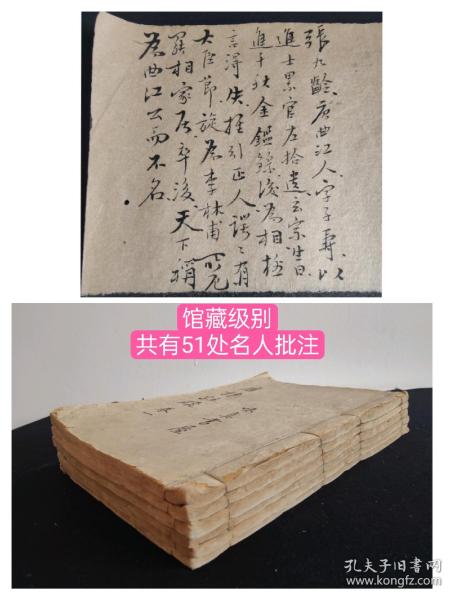 張九齡唐曲江人字子壽以
進士累官左拾遺玄宗生日
進千秋金鑑錄後為相極
言得失推引正人諤々有
大臣節旋為李林甫所危
罷相家居卒後天下稱
為曲江公而不名
馆藏级别
共有51处名人批注
孔夫子旧书网
www.kongfz.com